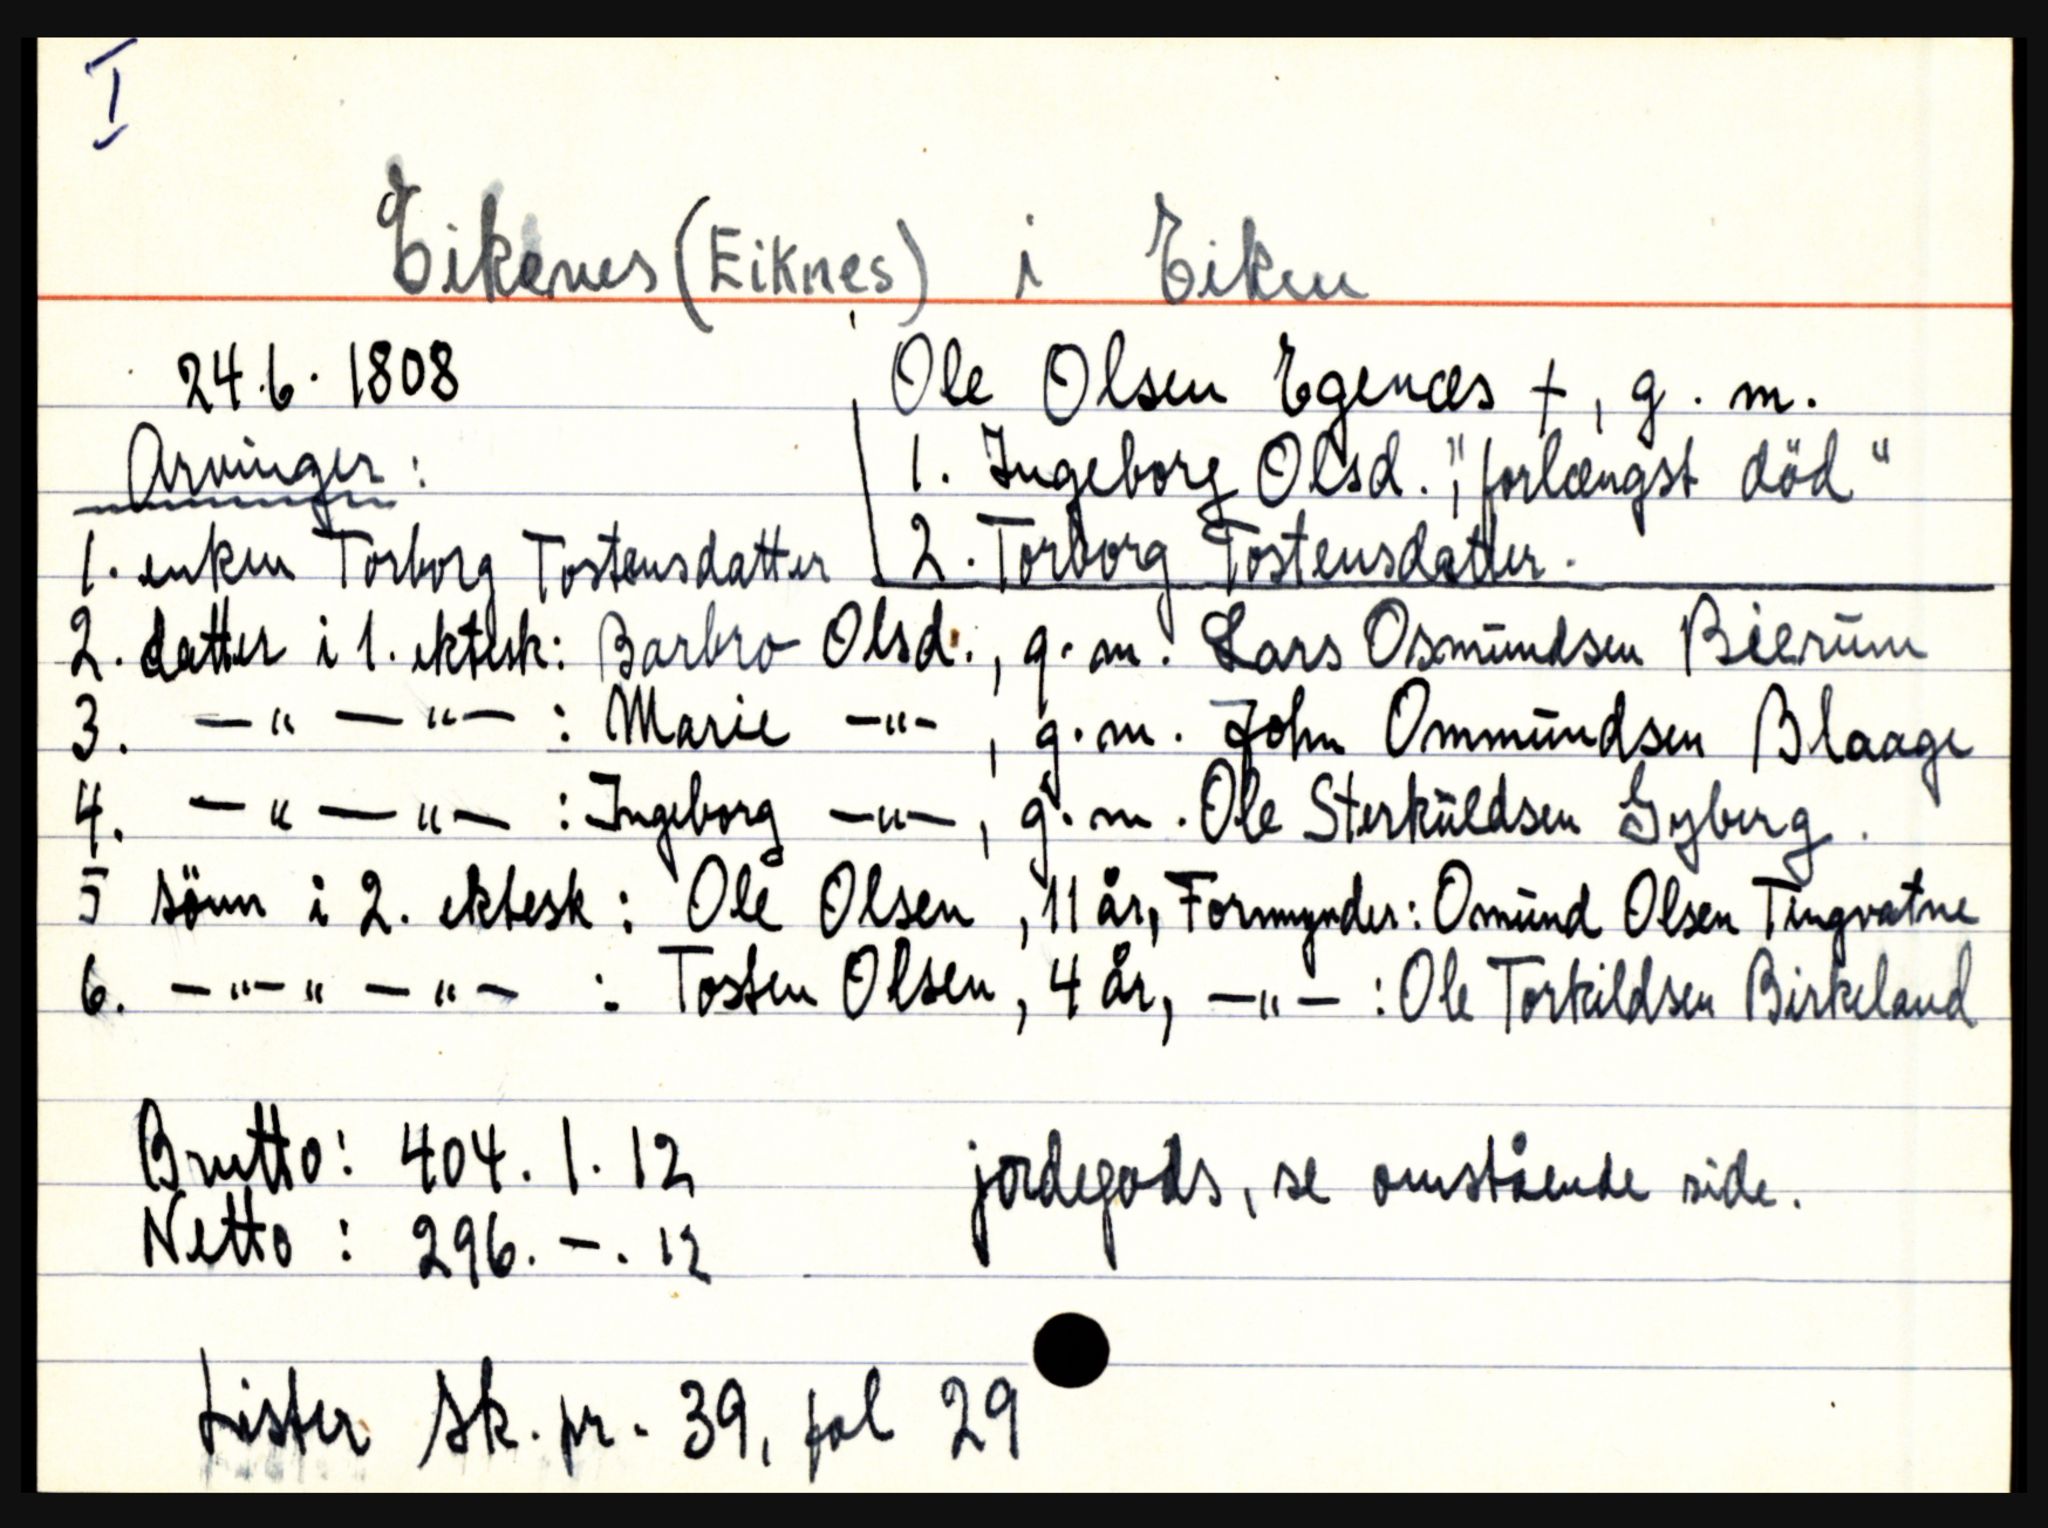 I
Eikenes (Eiknes) i Eiken
24.6. 1808
Ole Olsen Egenæs †, g. m.
Arvinger:
1. Ingeborg Olsd. ; "forlængst död"
1. enken Torborg Tostensdatter
2. Torborg Tostensdatter.
2. datter i 1. ektesk: Barbro Olsd., g. m. Lars Osmundsen Bierum
3. — " — " — : Marie — " — , g. m. John Ommundsen Blaage
4. — " — " — : Ingeborg — " — , g. m. Ole Sterkuldsen Gyberg.
5 sönn i 2. ektesk: Ole Olsen, 11 år, Formynder: Omund Olsen Tingvatne
6. — " — " — " — : Tosten Olsen, 4 år, — " — : Ole Torkildsen Birkeland
Brutto: 404. 1. 12
jordegods, se omstående side.
Netto: 296. —. 12
Lister sk. pr. 39, fol 29